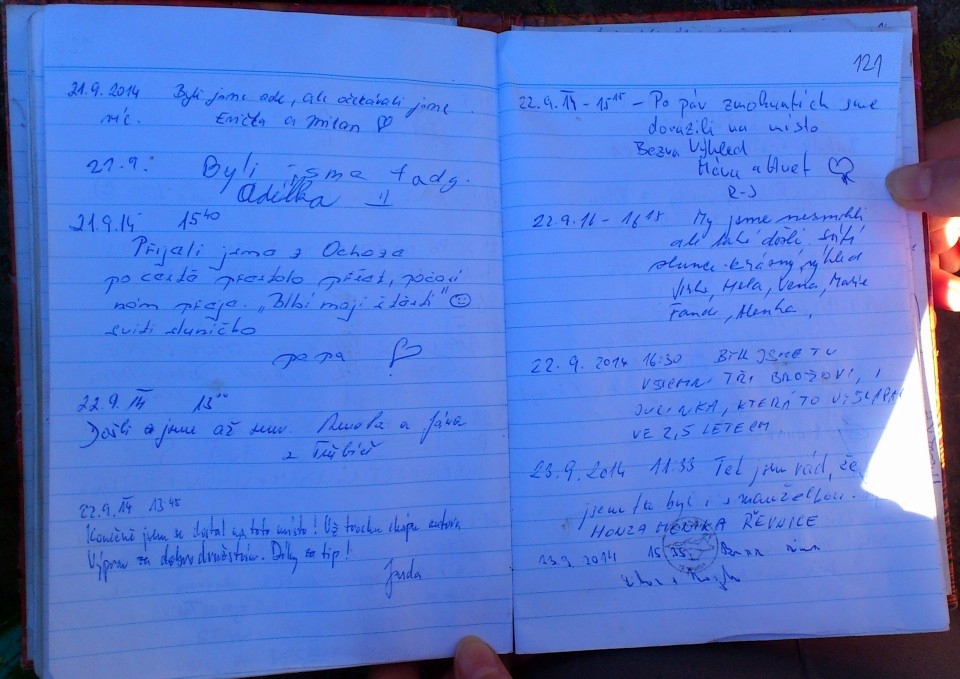 21.9.2014 Byli jsme ade, ale očekávali jsme
víc. Evička a Milan
21.9.: Byli jsme tady.
Adélka :)
21.9.14 15⁴⁰
Přijeli jsme z Ochoza
po cestě přestalo pršet, počasí
nám přeje. „Blbí mají štěstí"
svítí sluníčko
papa
22.9.14 13⁰⁰
Došli jsme až sem. a Jána
z Třebíč
22.9.14 13:45
Konečně jsem se dostal na toto místo! Už trochu chápu autora
Výprav za dobrodružstvím. Díky za tip!
Jarda
121
22.9.14 - 15¹⁵ - Po pár zmoknutích sme
dorazili na místo
Bezva Výhled
R-J
22.9.14 - 16¹⁵ My jsme nezmokli
ale také došli. Svítí
slunce - krásný výhled
Hela, Vena, Marie
Fanda, Alenka,
22.9.2014 16:30 BYLI JSME TU
VŠICHNI TŘI BROŽOVI, I
JULINKA, KTERÁ TO VYŠLAPALA
VE 2,5 LETECH
23.9.2014 11:33 Teť jsem rád, že
jsem tu byl i s manželkou.
HONZA ŘEVNICE
23.9.2014 15